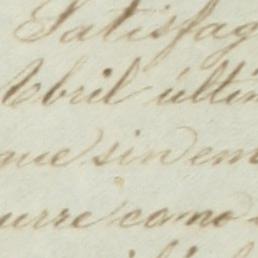 Satisfag
Abril últim
que sin em
urre como